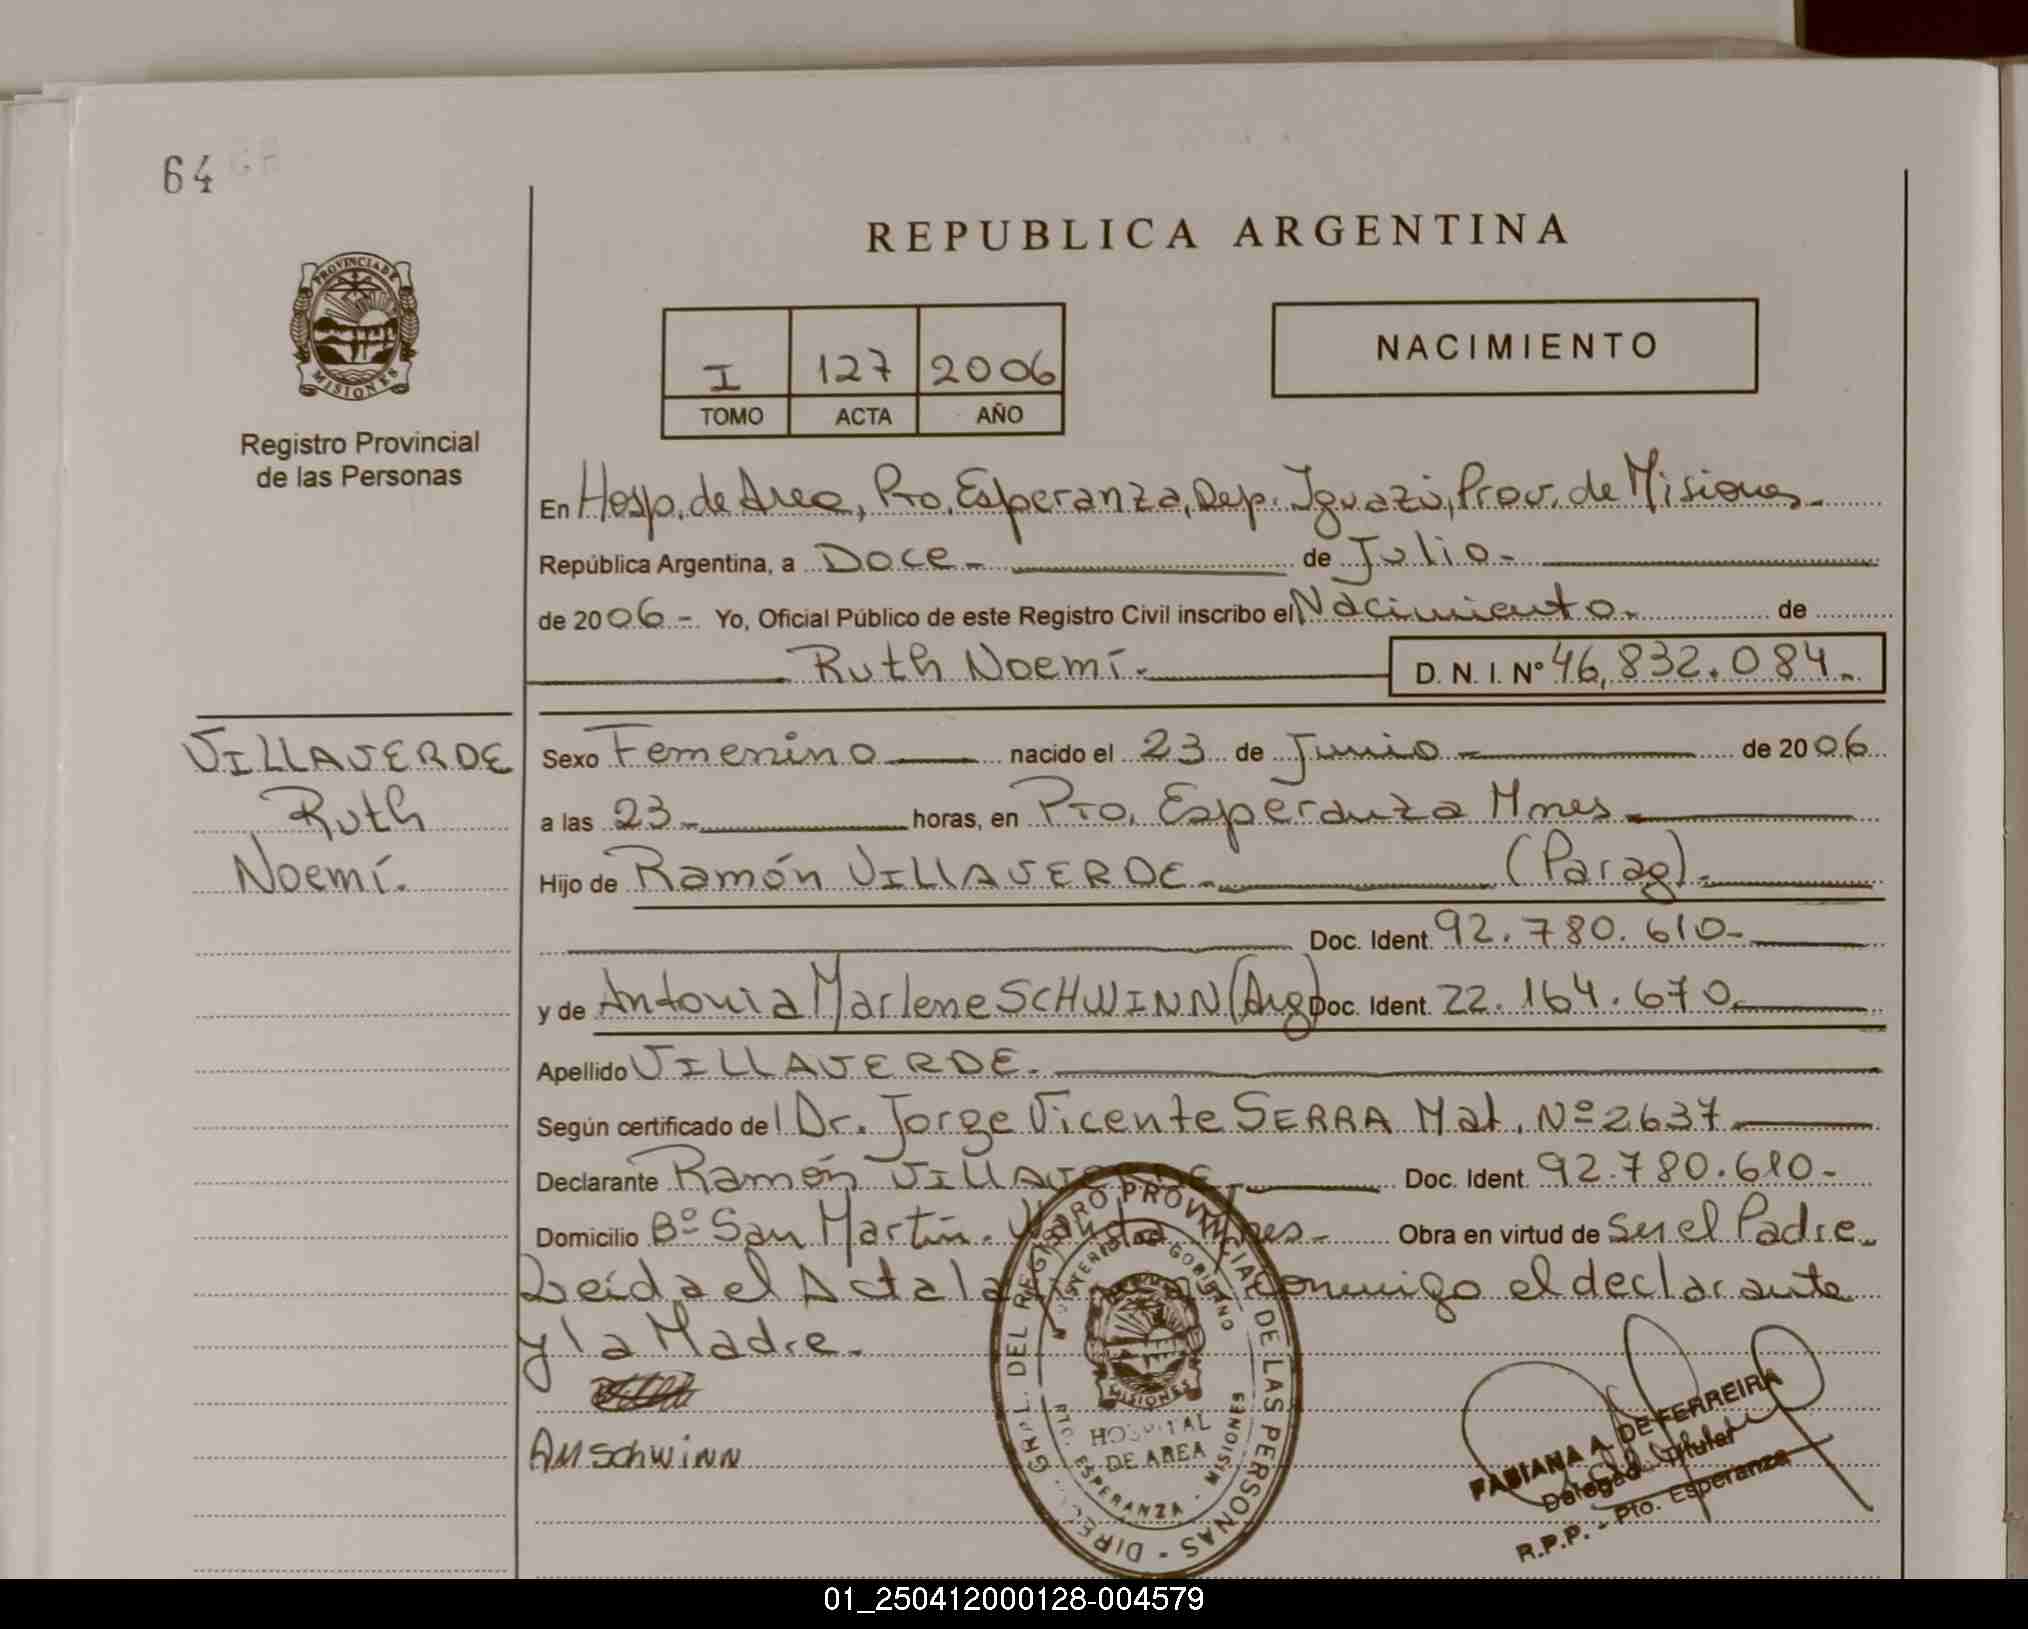 64
REPUBLICA ARGENTINA
PROVINCIA DE
MISIONES
Registro Provincial
de las Personas
I 127 2006
TOMO ACTA AÑO
NACIMIENTO
En Hosp. de Area, Pto. Esperanza, Dep. Iguazú, Prov. de Misiones-
República Argentina, a Doce- de Julio-
de 2006- Yo, Oficial Público de este Registro Civil inscribo el Nacimiento- de
Ruth Noemí- D. N. I. Nº 46,832.084-
VILLAVERDE
Ruth
Noemí.
Sexo Femenino nacido el 23 de Junio- de 2006
a las 23- horas, en Pto. Esperanza Mnes-
Hijo de Ramón VILLAVERDE- (Parag)-
Doc. Ident. 92.780.610-
y de Antonia Marlene SCHWINN (Arg) Doc. Ident. 22.164.670-
Apellido VILLAVERDE-
Según certificado del Dr. Jorge Vicente SERRA Mat. Nº 2637
Declarante Ramón VILLAVERDE- Doc. Ident. 92.780.610-
Domicilio Bº San Martín. Wanda Mnes- Obra en virtud de Ser el Padre-
Leída el Acta la conmigo el declarante
y la Madre-
AMSchwinn
DIREC. GRAL. DEL REGISTRO PROVINCIAL DE LAS PERSONAS -
MINISTERIO DE GOBIERNO
MISIONES
HOSPITAL
DE AREA
PTO. ESPERANZA - MISIONES
FABIANA A. DE FERREIRA
Delegada Titular
R.P.P. - Pto. Esperanza
01_250412000128-004579